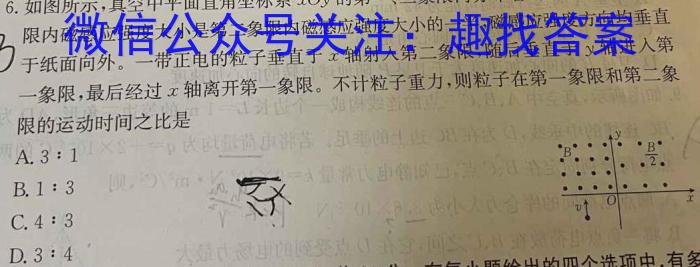 6. 如图所示,真空中平面直角坐标系 xOy 的第
微信公众号关注:趣找答案
限内磁感应强度大小是第二象限内磁感应强度大小的一 垂直
于纸面向外。一带正电的粒子垂直于 x 轴射入第二象限,随后垂直于 y 轴进入第
一象限,最后经过 x 轴离开第一象限。不计粒子重力,则粒子在第一象限和第二象
限的运动时间之比是
A. 3∶1
B. 1∶3
C. 4∶3
D. 3∶4
y
B
B/2
v
O
x
在每小题给出的四个选项中,有多